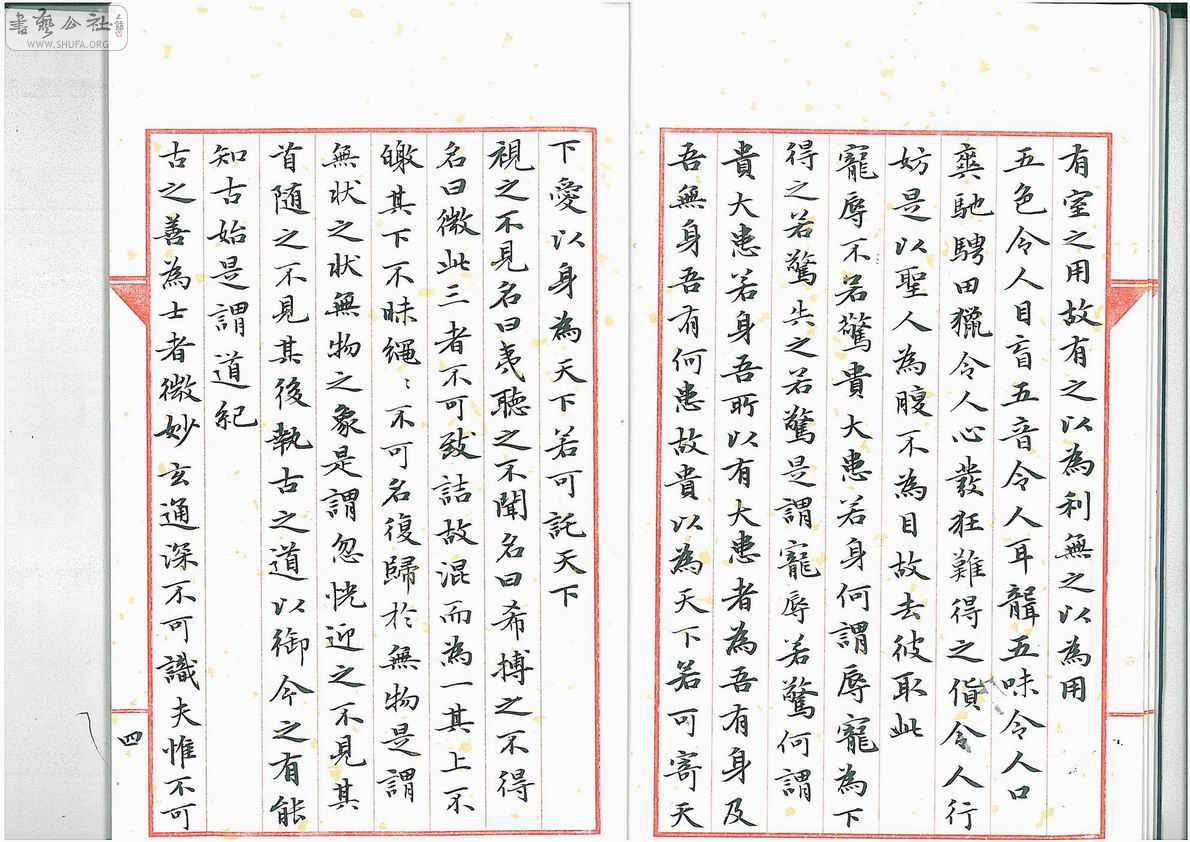 書藝公社
WWW.SHUFA.ORG
有室之用故有之以為利無之以為用
五色令人目盲五音令人耳聾五味令人口
爽馳騁田獵令人心發狂難得之貨令人行
妨是以聖人為腹不為目故去彼取此
寵辱不若驚貴大患若身何謂辱寵為下
得之若驚失之若驚是謂寵辱若驚何謂
貴大患若身吾所以有大患者為吾有身及
吾無身吾有何患故貴以為天下若可寄天
下愛以身為天下若可託天下
視之不見名曰夷聽之不聞名曰希搏之不得
名曰微此三者不可致詰故混而為一其上不
皦其下不昧繩〻不可名復歸於無物是謂
無狀之狀無物之象是謂忽恍近之不見其
首隨之不見其後執古之道以御今之有能
知古始是謂道紀
古之善為士者微妙玄通深不可識夫惟不可
四